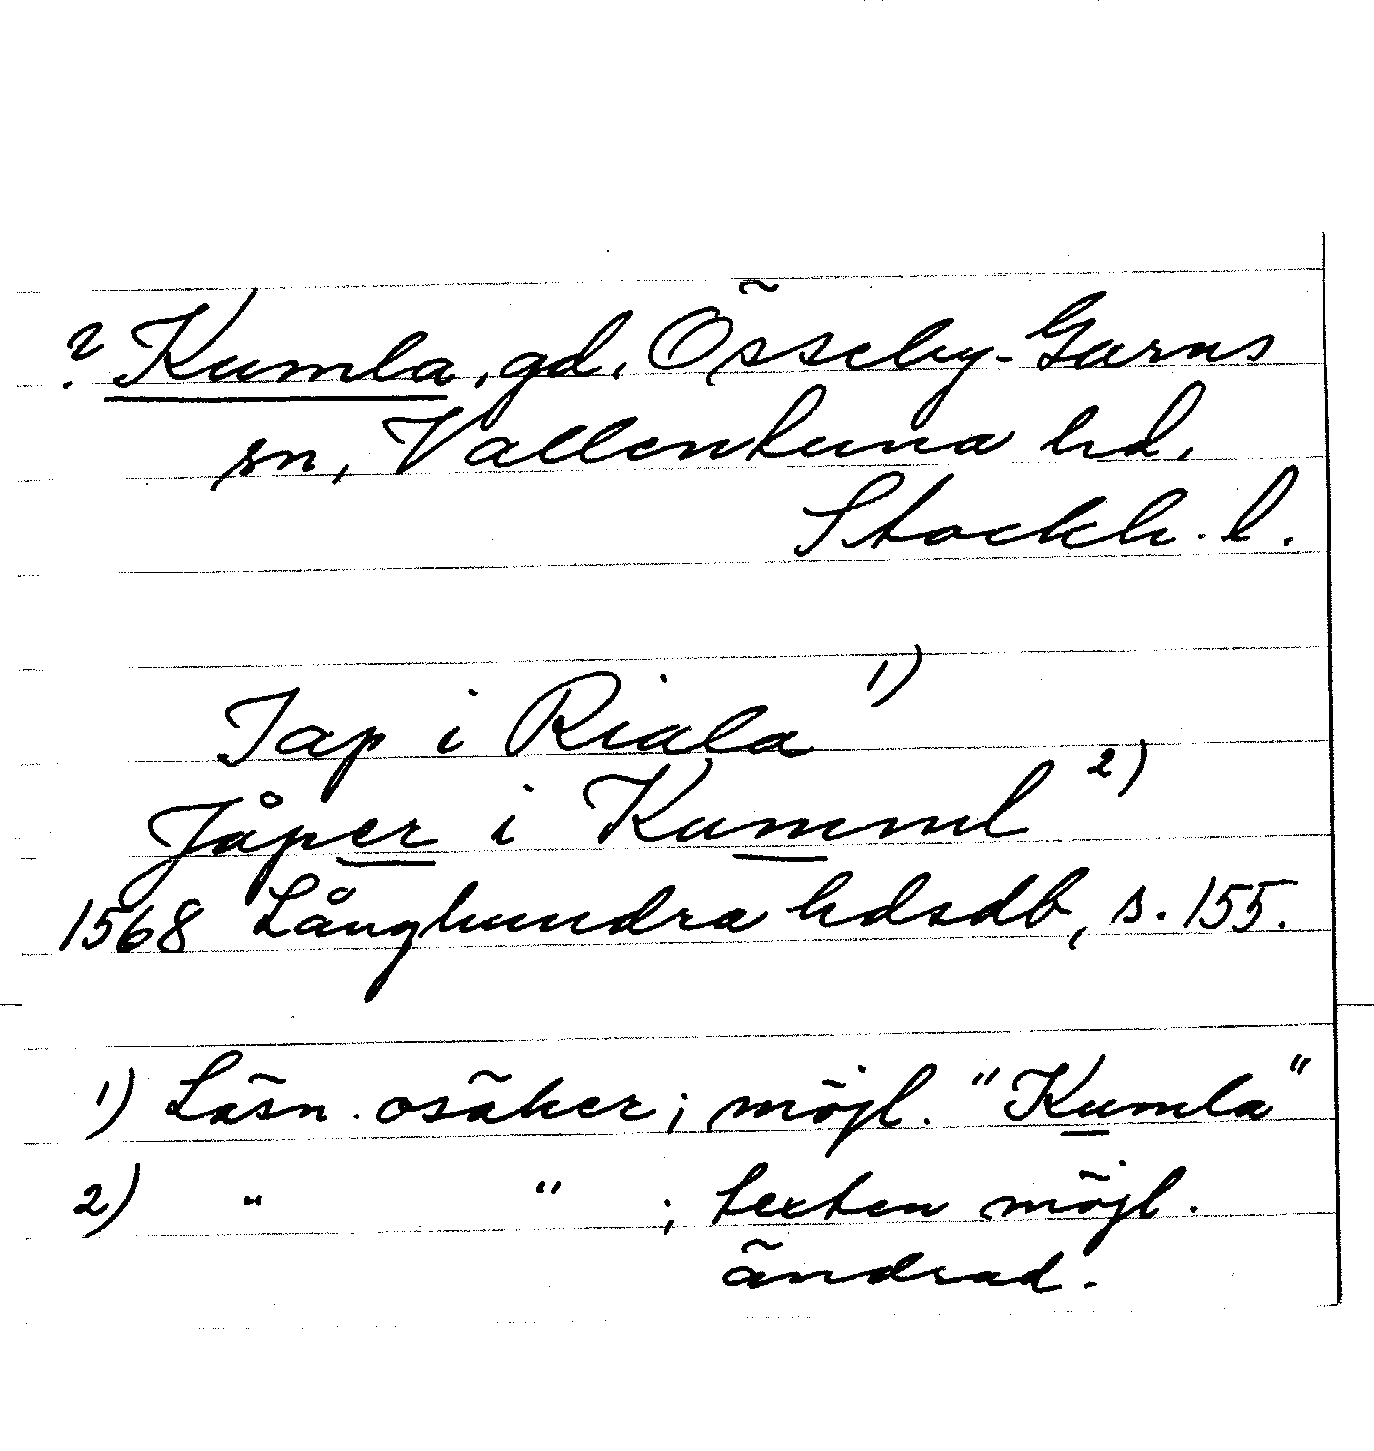 ? Kumla, gd, Össeby-Garns
sn, Vallentuna hd,
Stockh. l.
Jap i Riala 1)
Jåper i Kumml 2)
1568 Långhundra hdsdb, s. 155.
1) Läsn. osäker; möjl. "Kumla"
2) " " ; texten möjl.
ändrad.